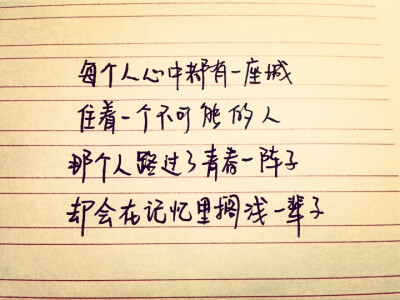 每个人心中都有一座城
住着一个不可能的人
那个人路过了青春一阵子
却会在记忆里搁浅一辈子